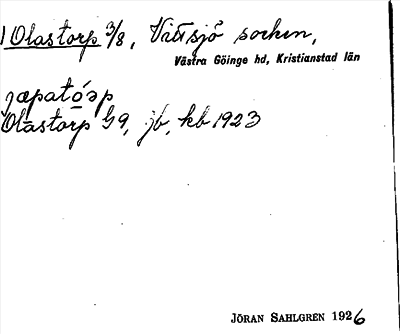 1 Olastorp 3/8, Vittsjö socken,
Västra Göinge hd, Kristianstad län
Olastorp G9, jb, kb 1923
JÖRAN SAHLGREN 1926